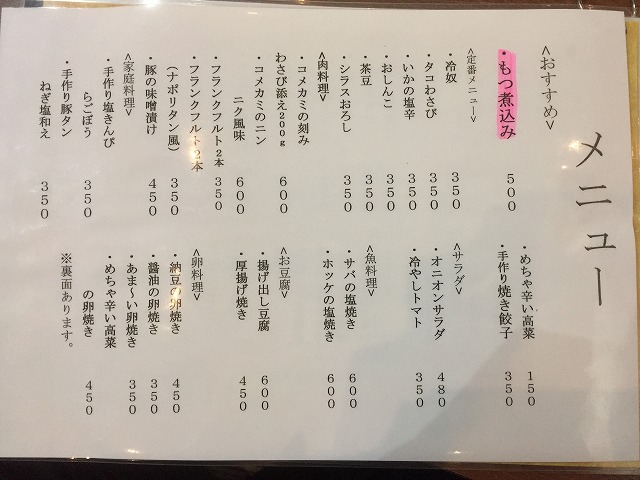 メニュー
<おすすめ>
・もつ煮込み 500
<定番メニュー>
・冷奴 350
・タコわさび 350
・いかの塩辛 350
・おしんこ 350
・茶豆 350
・シラスおろし 350
<肉料理>
・コメカミの刻み
わさび添え200g 600
・コメカミのニン
ニク風味 600
・フランクフルト2本 350
・フランクフルト2本
(ナポリタン風) 350
・豚の味噌漬け 450
<家庭料理>
・手作り塩きんぴ
らごぼう 350
・手作り豚タン
ねぎ塩和え 350
・めちゃ辛い高菜 150
・手作り焼き餃子 350
<サラダ>
・オニオンサラダ 480
・冷やしトマト 350
<魚料理>
・サバの塩焼き 600
・ホッケの塩焼き 600
<お豆腐>
・揚げ出し豆腐 600
・厚揚げ焼き 450
<卵料理>
・納豆の卵焼き 450
・醤油の卵焼き 350
・あま〜い卵焼き 350
・めちゃ辛い高菜
の卵焼き 450
※裏面あります。